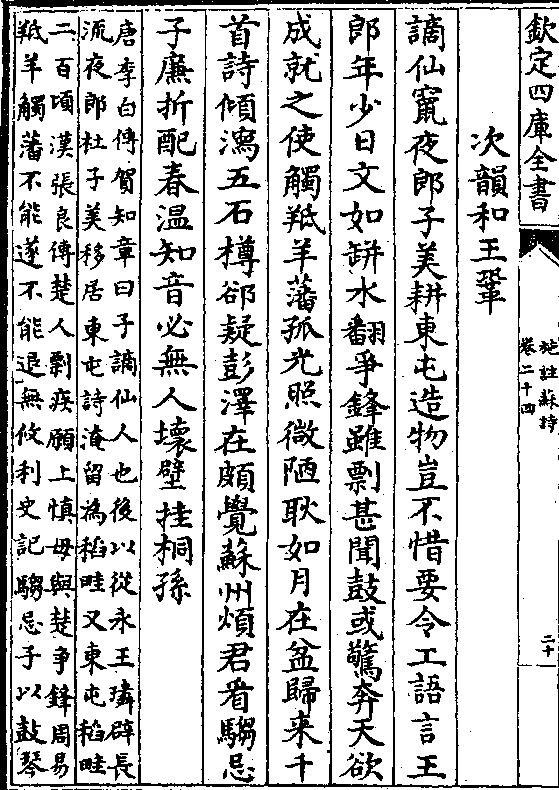 欽定四庫全書
施註蘇詩
卷二十四
二十
次韻和王鞏
謫仙竄夜郎子美耕東屯造物豈不惜要令工語言王
郎年少日文如缾水翻爭鋒雖剽甚聞鼓或驚奔天欲
成就之使觸羝羊藩孤光照微陋耿如月在盆歸来千
首詩傾瀉五石樽郤疑彭澤在頗覺蘇州煩君看騶忌
子廉折配春温知音必無人壞壁挂桐孫
唐李白傳賀知章曰子謫仙人也後以從永王璘辟長
流夜郎杜子美移居東屯詩淹留為稻畦又東屯稻畦
二百頃漢張良傳楚人剽疾願上慎毋與楚争鋒周易
羝羊觸藩不能遂不能退無攸利史記騶忌子以鼓琴